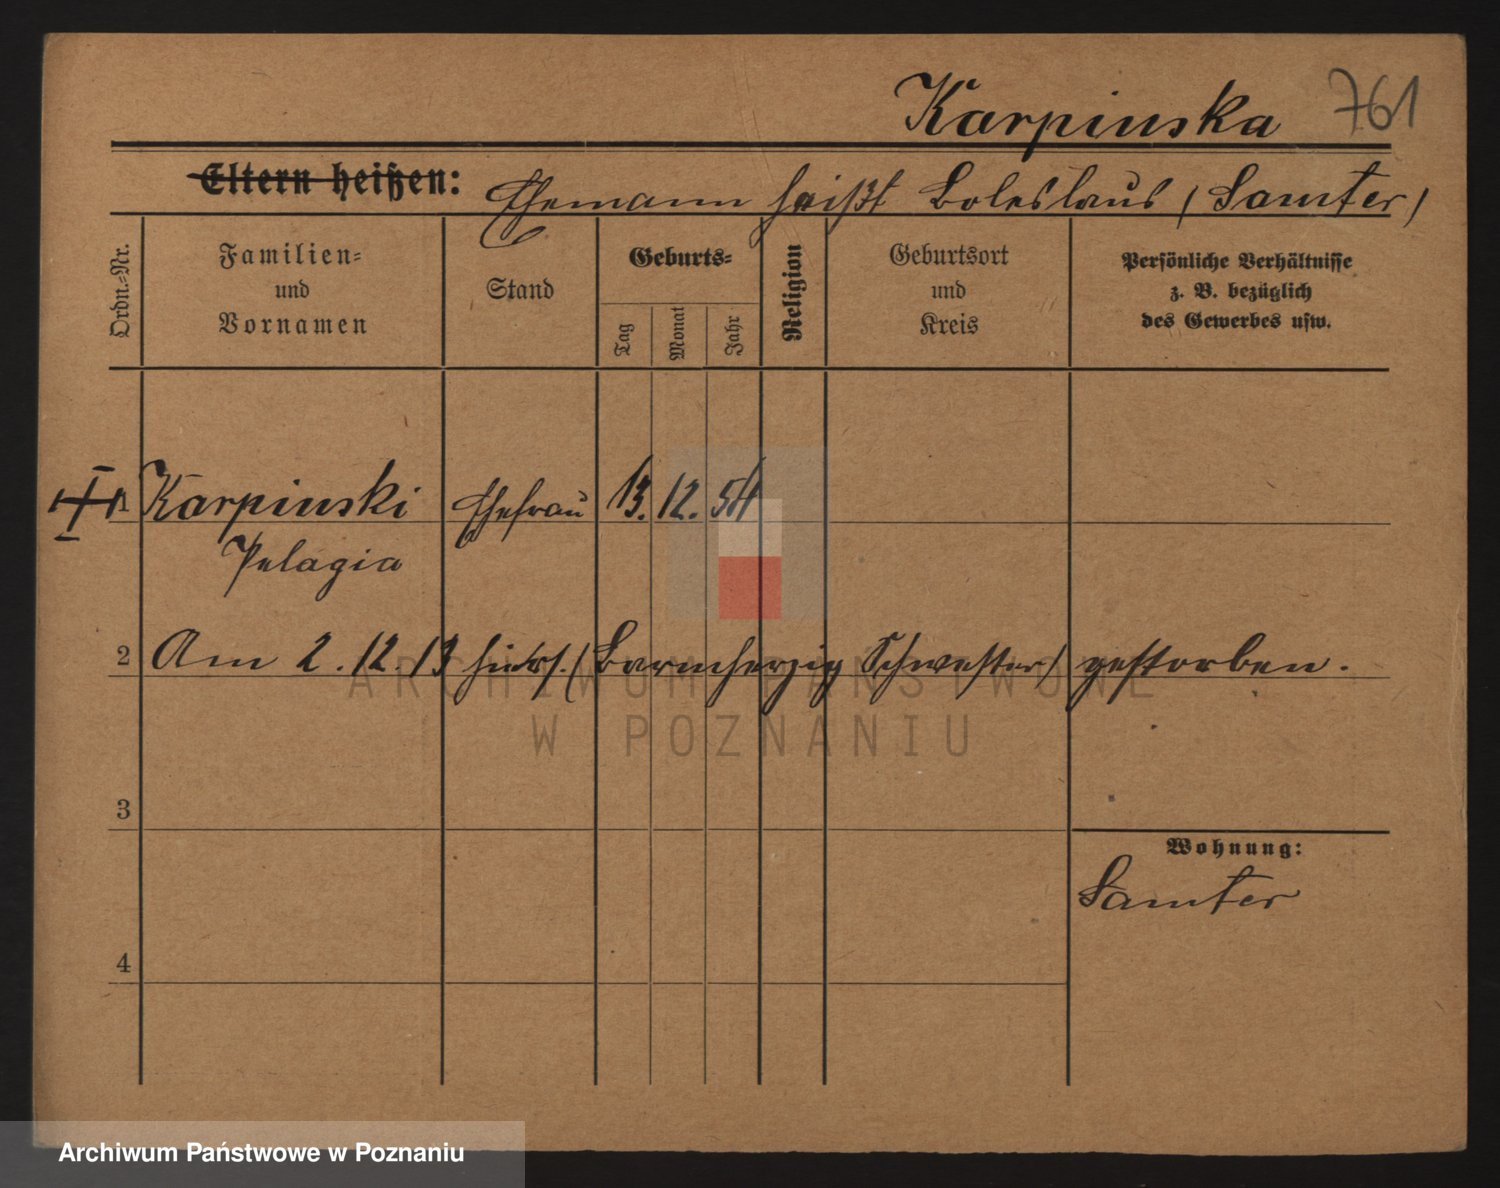 Karpinska 761
Eltern heißen: Ehemann heißt Boleslaus (Samter)
Ordn.-Nr.
Familien-
und
Vornamen
Stand
Geburts-
Tag
Monat
Jahr
Religion
Geburtsort
und
Kreis
Persönliche Verhältnisse
z. B. bezüglich
des Gewerbes usw.
1 Karpinski Ehefrau 13. 12. 54
Pelagia
2 Am 2. 12. 13 hiers. (Barmherzig Schwester) gestorben.
ARCHIWUM PAŃSTWOWE
W POZNANIU
3
Wohnung:
Samter
4
Archiwum Państwowe w Poznaniu